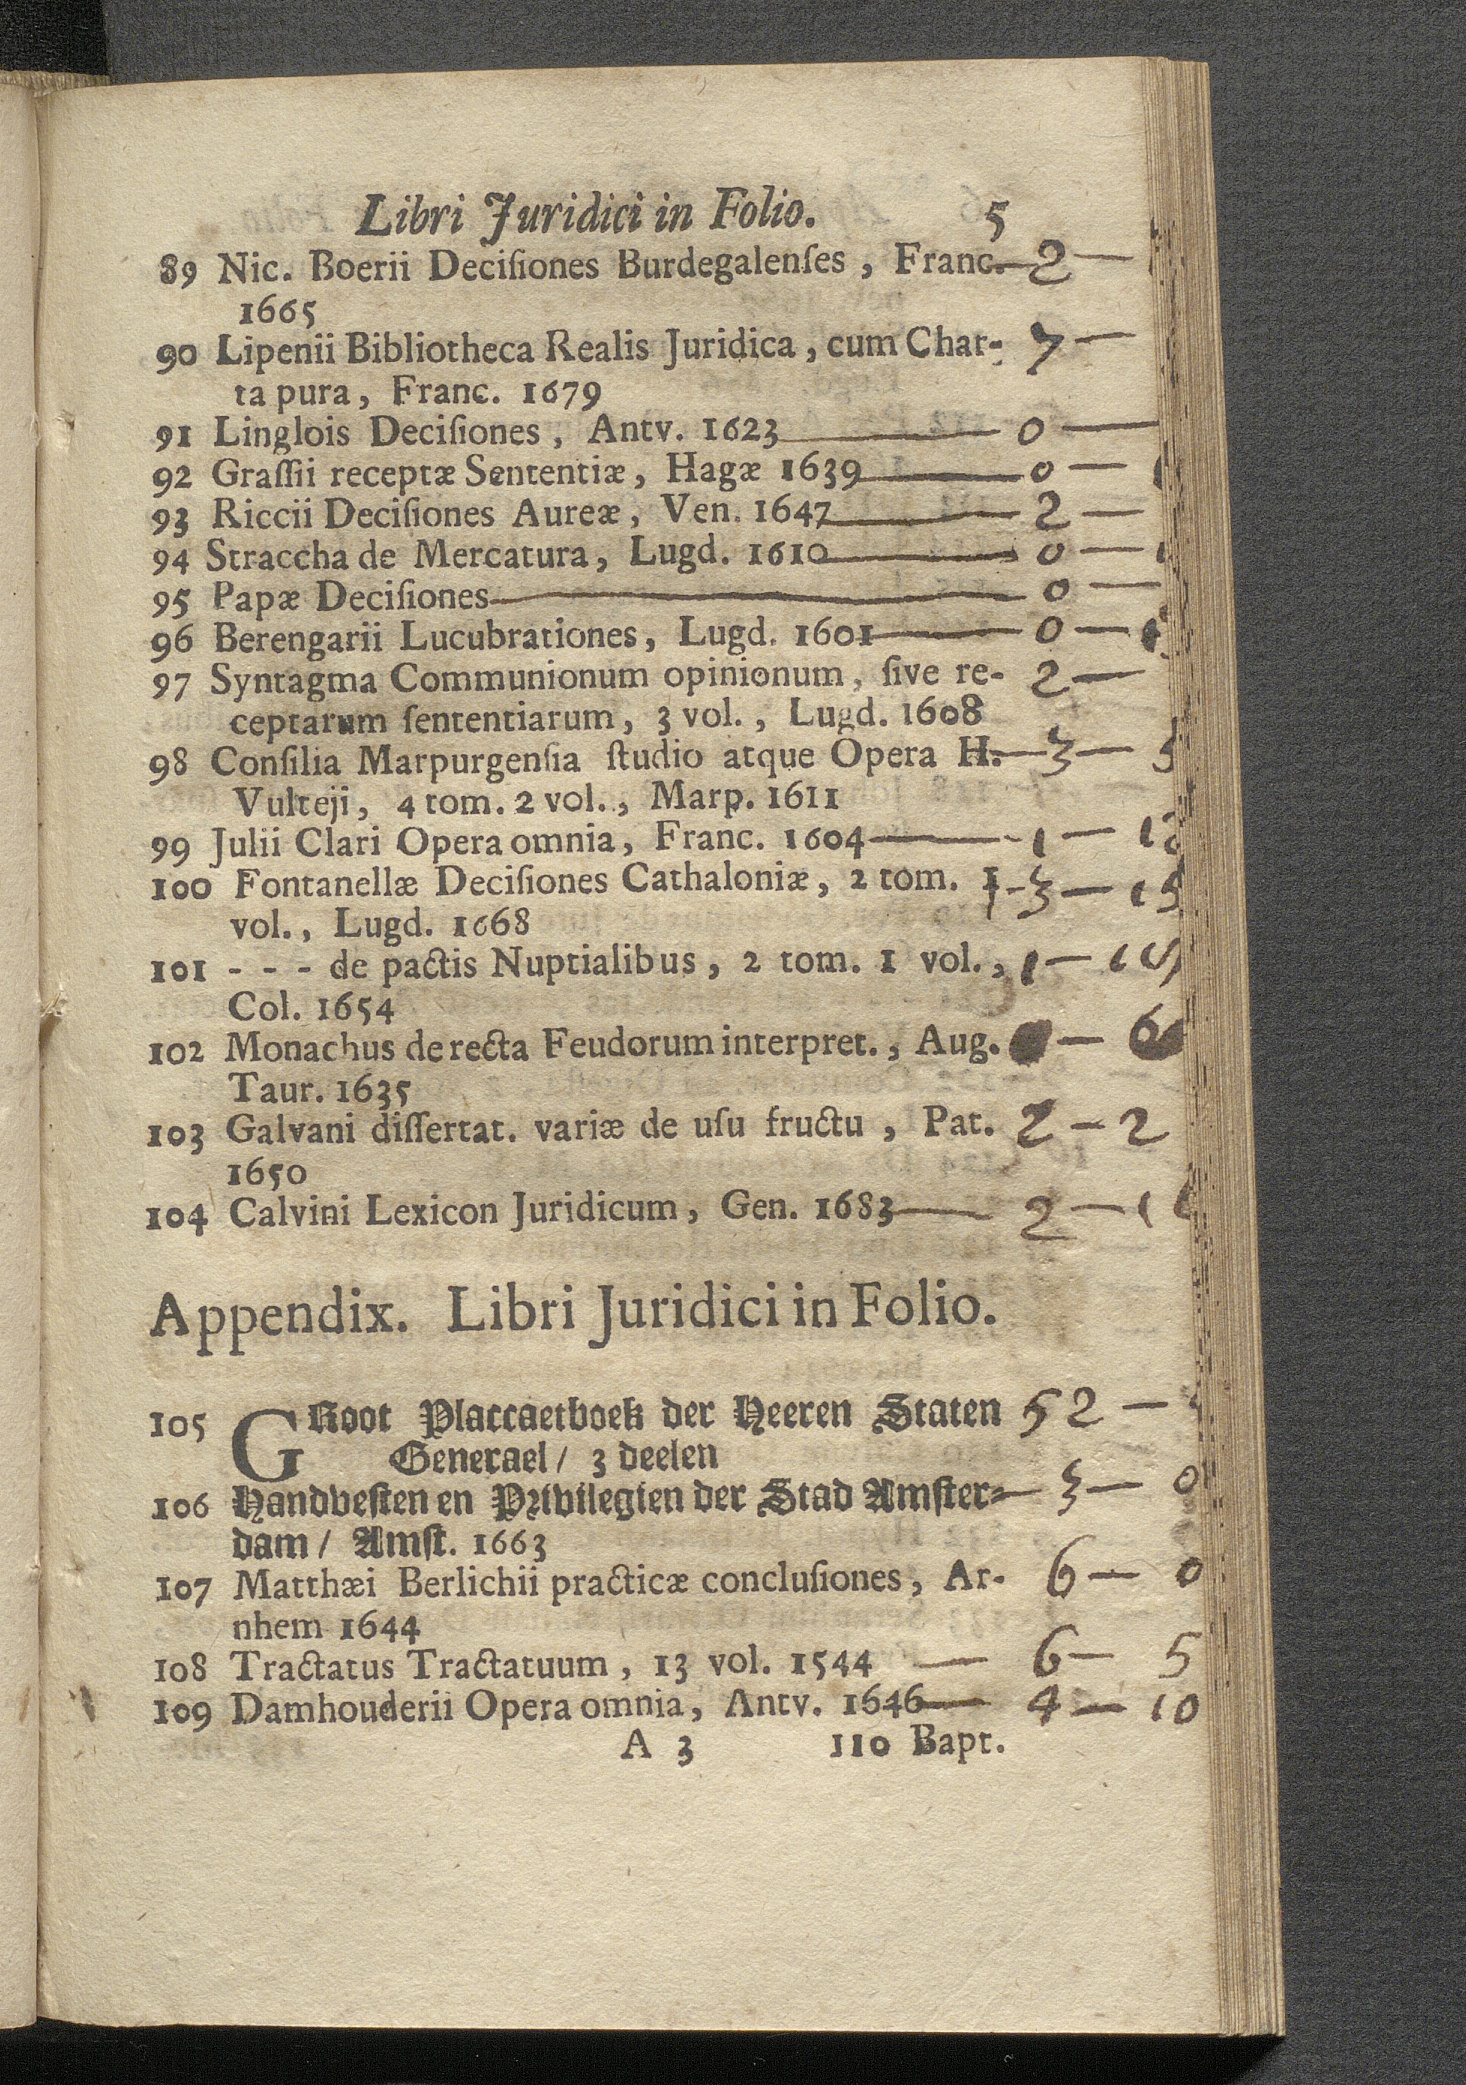 Libri Juridici in Folio. 5
89 Nic. Boerii Deciſiones Burdegalenſes , Franc. — 2 —
1665
90 Lipenii Bibliotheca Realis Juridica , cum Char- 7 —
ta pura , Franc. 1679
91 Linglois Deciſiones , Antv. 1623 — 0 —
92 Graſſii receptæ Sententiæ , Hagæ 1639 — 0 —
93 Riccii Deciſiones Aureæ , Ven. 1647 — 2 —
94 Straccha de Mercatura , Lugd. 1610 — 0 —
95 Papæ Deciſiones — 0 —
96 Berengarii Lucubrationes , Lugd. 1601 — 0 —
97 Syntagma Communionum opinionum , ſive re- 2 —
ceptarum ſententiarum , 3 vol. , Lugd. 1608
98 Conſilia Marpurgenſia ſtudio atque Opera H. — 3 — 5
Vulteji , 4 tom. 2 vol. , Marp. 1611
99 Julii Clari Opera omnia , Franc. 1604 — 1 — 12
100 Fontanellæ Deciſiones Cathaloniæ , 2 tom. 1 - 3 — 15
vol. , Lugd. 1668
101 - - - de pactis Nuptialibus , 2 tom. 1 vol. , 1 —
Col. 1654
102 Monachus de recta Feudorum interpret. , Aug. — 6
Taur. 1635
103 Galvani diſſertat. variæ de uſu fructu , Pat. 2 — 2
1650
104 Calvini Lexicon Juridicum , Gen. 1683 — 2 —
Appendix. Libri Juridici in Folio.
105 GRoot Placcaetboek der Heeren Staten 52 —
Generael / 3 deelen
106 Handveſten en Privilegien der Stad Amſter- — 3 — 0
dam / Amſt. 1663
107 Matthæi Berlichii practicæ concluſiones , Ar- 6 — 0
nhem 1644
108 Tractatus Tractatuum , 13 vol. 1544 — 6 — 5
109 Damhouderii Opera omnia , Antv. 1646 — 4 — 10
A 3 110 Bapt.